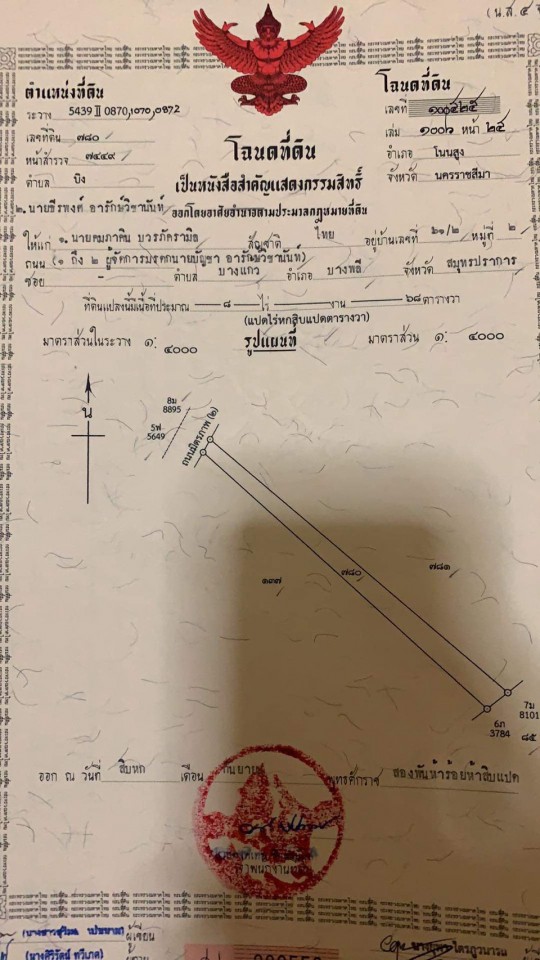 (น.ส. ๔ จ
ตำแหน่งที่ดิน
ระวาง 5439 II 0870,1070,0872
เลขที่ดิน ๗๘๐
หน้าสำรวจ ๗๔๔๙
ตำบล บิง
โฉนดที่ดิน
เลขที่ ๑๐๐๕๒๕
เล่ม ๑๐๐๖ หน้า ๒๕
อำเภอ โนนสูง
จังหวัด นครราชสีมา
โฉนดที่ดิน
เป็นหนังสือสำคัญแสดงกรรมสิทธิ์
ออกโดยอาศัยอำนาจตามประมวลกฎหมายที่ดิน
๒. นายธีรพงศ์ อารักษ์วิชานันท์
ให้แก่ ๑. นายคมภาคิน บวรภัครามิล สัญชาติ ไทย อยู่บ้านเลขที่ ๖๑/๒ หมู่ที่ ๒
ถนน (๑ ถึง ๒ ผู้จัดการมรดกนายบัญชา อารักษ์วิชานันท์)
ซอย - ตำบล บางแก้ว อำเภอ บางพลี จังหวัด สมุทรปราการ
ที่ดินแปลงนี้มีเนื้อที่ประมาณ ๘ ไร่ งาน ๖๘ ตารางวา
(แปดไร่หกสิบแปดตารางวา)
มาตราส่วนในระวาง ๑: ๔๐๐๐ รูปแผนที่ มาตราส่วน ๑: ๔๐๐๐
น
8ม
8895
5ฟ
5649
ถนนมิตรภาพ (๒)
๑๓๗
๗๘๐
๗๘๑
7ม
8101
6ภ
3784
๘๕
ออก ณ วันที่ สิบหก เดือน กันยายน พุทธศักราช สองพันห้าร้อยห้าสิบแปด
เจ้าพนักงานที่ดิน
ผู้เขียน
(นางศิริวัฒน์ ทวีเกต)